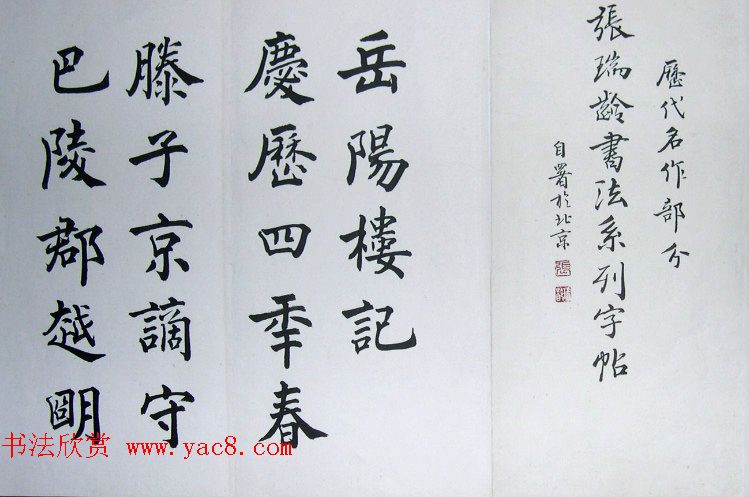 歷代名作部分
張瑞齡書法系列字帖
自署於北京
岳陽樓記
慶歷四年春
滕子京謫守
巴陵郡越明
书法欣赏 www.yac8.com